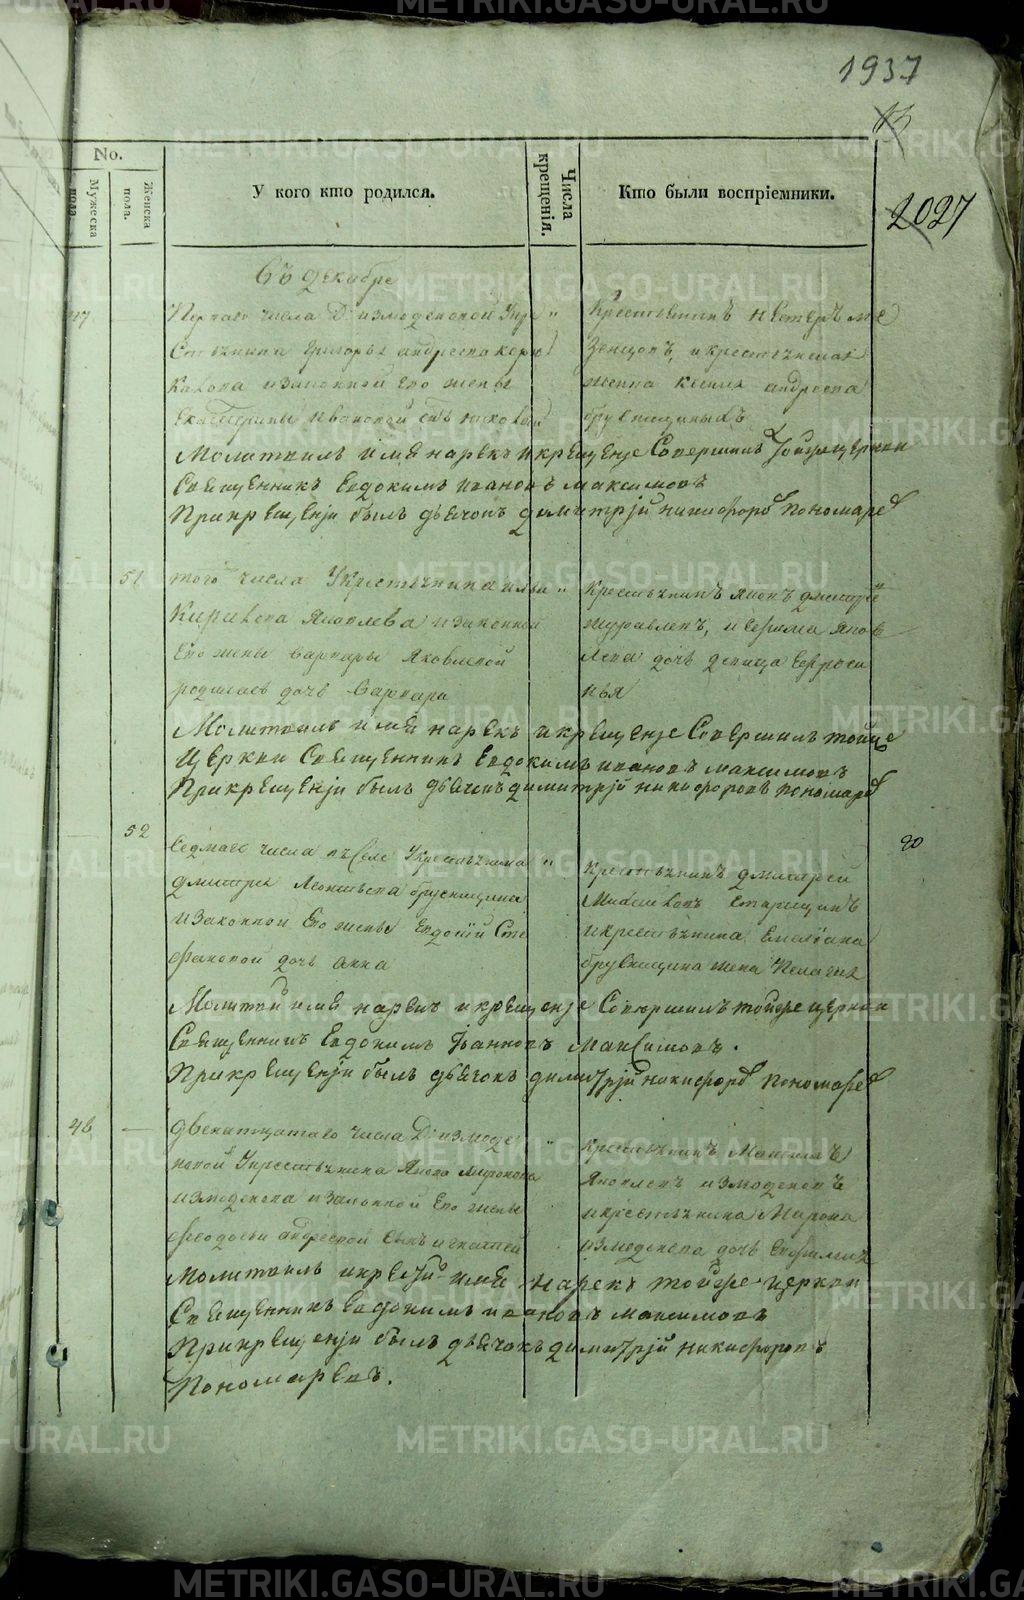 1937
13
2027
No.
Мужеска пола.
Женска пола.
У кого кто родился.
Числа крещенія.
Кто были воспріемники.
въ Декабре
47
Перваго числа Д. измоденовой Укре
стьянина Григорья андреева
и законной его жены
Екатерины Ивановой сынъ
Крестьянинъ Нестеръ ме
зенцовъ, и крестьянина
женка андреева
брусницыныхъ
Молитвилъ имя нарекъ и крещенје Совершилъ тойже церкви
Священникъ Евдокимъ ивановъ максимовъ
Прикрещенји былъ дьячокъ димитрји никифоровъ пономаревъ
51
того числа Укрестьянина ильи
Кирилова Яковлева и законной
Его жены варвары Яковлевой
родилась дочь Варвара
Крестьянинъ Яковъ дмитрје
журавлевъ, и Яков
лева дочь девица Евфроси
нья
Молитвилъ имя нарекъ и крещенје Совершилъ тойже
Церкви Священникъ Евдокимъ ивановъ максимовъ
Прикрещенји былъ дьячокъ димитрји никифоровъ пономаревъ
52
Седмаго числа въ Селе Укрестьянина
дмитрея Леонтьева брусницына
и законной Его жены Евдокіи Сте
фановой дочь анна
крестьянинъ дмитрей
Михайловъ Старицынъ
и крестьянина Емельяна
брусницына жена Пелагея
20
Молитвой имя нарекъ и крещенје Совершилъ тойже церкви
Священникъ Евдокимъ Іванновъ Максимовъ.
Прикрещенји былъ дьячокъ димитрји никифоровъ пономаревъ
48
двенатцатаго числа Д. измоде
новой Укрестьянина Якова
измоденова и законной Его жены
феодосьи андреевой сынъ игнатей
крестьянинъ Максимъ
Яковлевъ измоденовъ
и крестьянина Мирона
измоденова дочь
Молитвилъ икрестилъ имя нарекъ тойже церкви
Священникъ Евдокимъ ивановъ максимовъ
Прикрещенји былъ дьячокъ димитрји никифоровъ
Пономаревъ.
METRIKI.GASO-URAL.RU